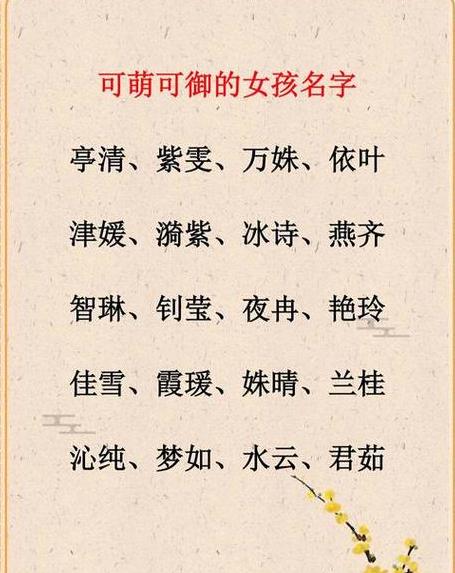 可萌可御的女孩名字
亭清、紫雯、万姝、依叶
津媛、漪紫、冰诗、燕齐
智琳、钊莹、夜冉、艳玲
佳雪、霞瑗、姝晴、兰桂
沁纯、梦如、水云、君茹